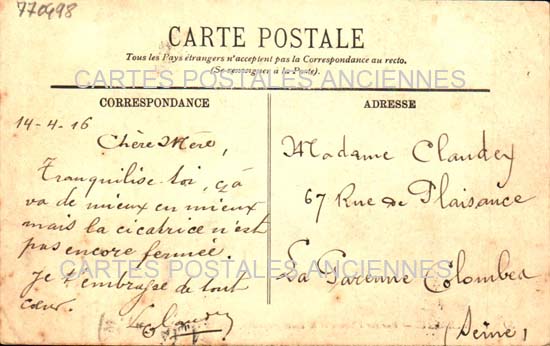 770498
CARTE POSTALE
Tous les Pays étrangers n'acceptent pas la Correspondance au recto.
(Se renseigner à la Poste).
CARTES POSTALES ANCIENNES
CORRESPONDANCE
14-4-16
Chère Mère,
Tranquilise-toi, ça
va de mieux en mieux
mais la cicatrice n'est
pas encore fermée.
Je t'embrasse de tout
cœur.
ADRESSE
Madame Claudey
67 Rue de Plaisance
La Garenne Colombes
(Seine)
CARTES POSTALES ANCIENNES